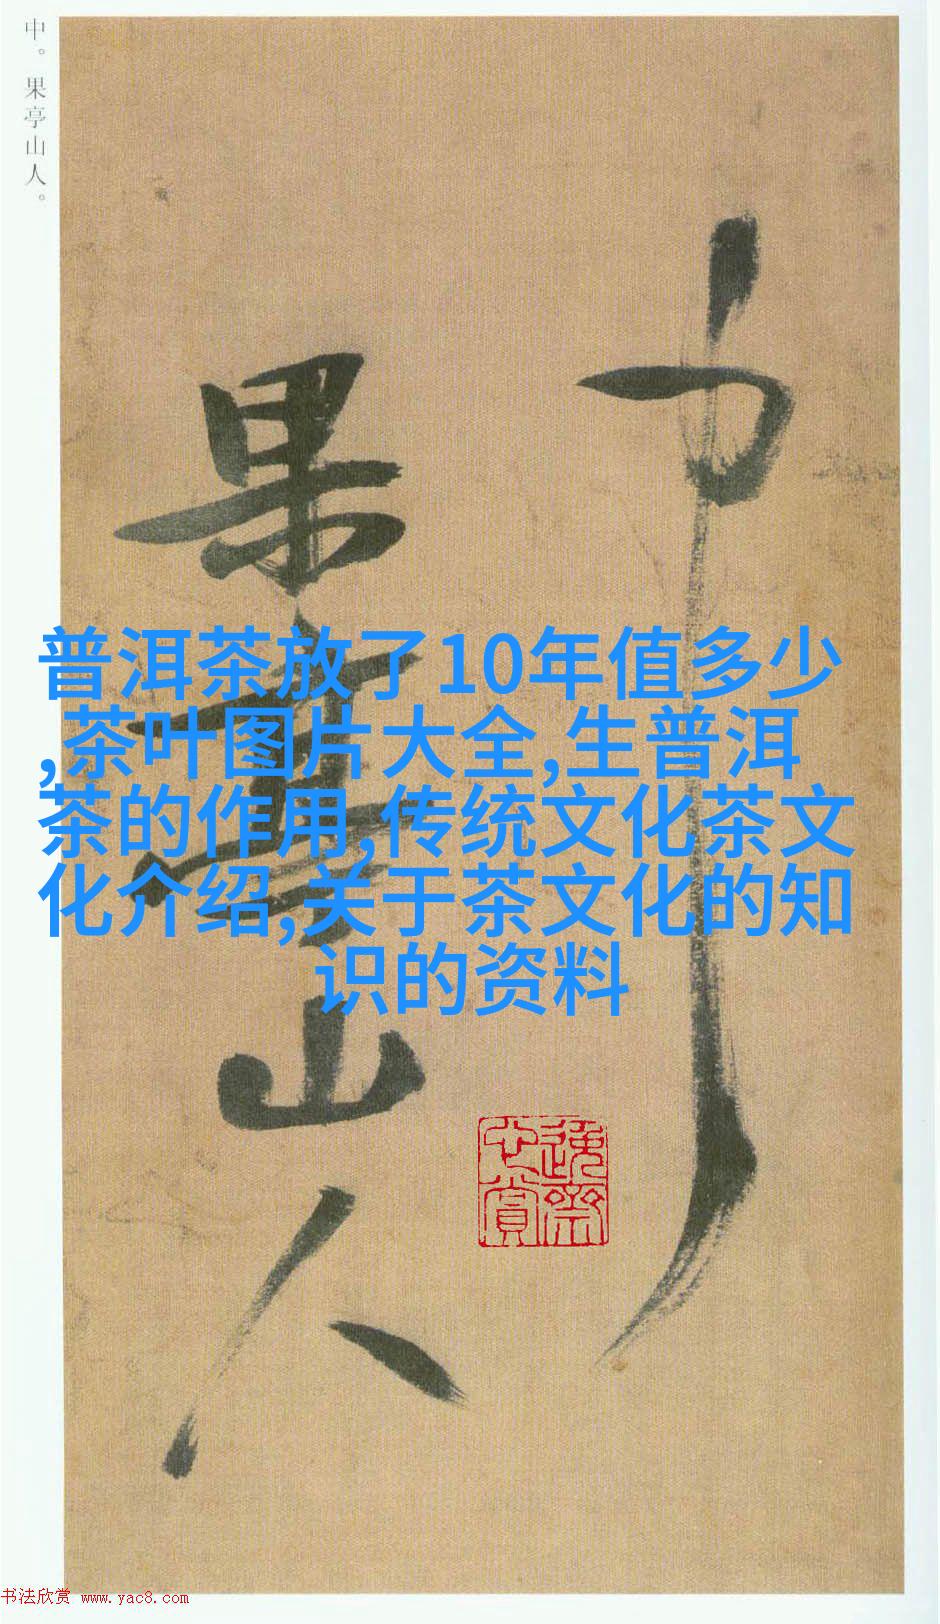 中。果亭山人。
中
果亭山人
普洱茶放了10年值多少
,茶叶图片大全,生普洱
茶的作用,传统文化茶文
化介绍,关于茶文化的知
识的资料
逸斋心赏
书法欣赏 www.yac8.com